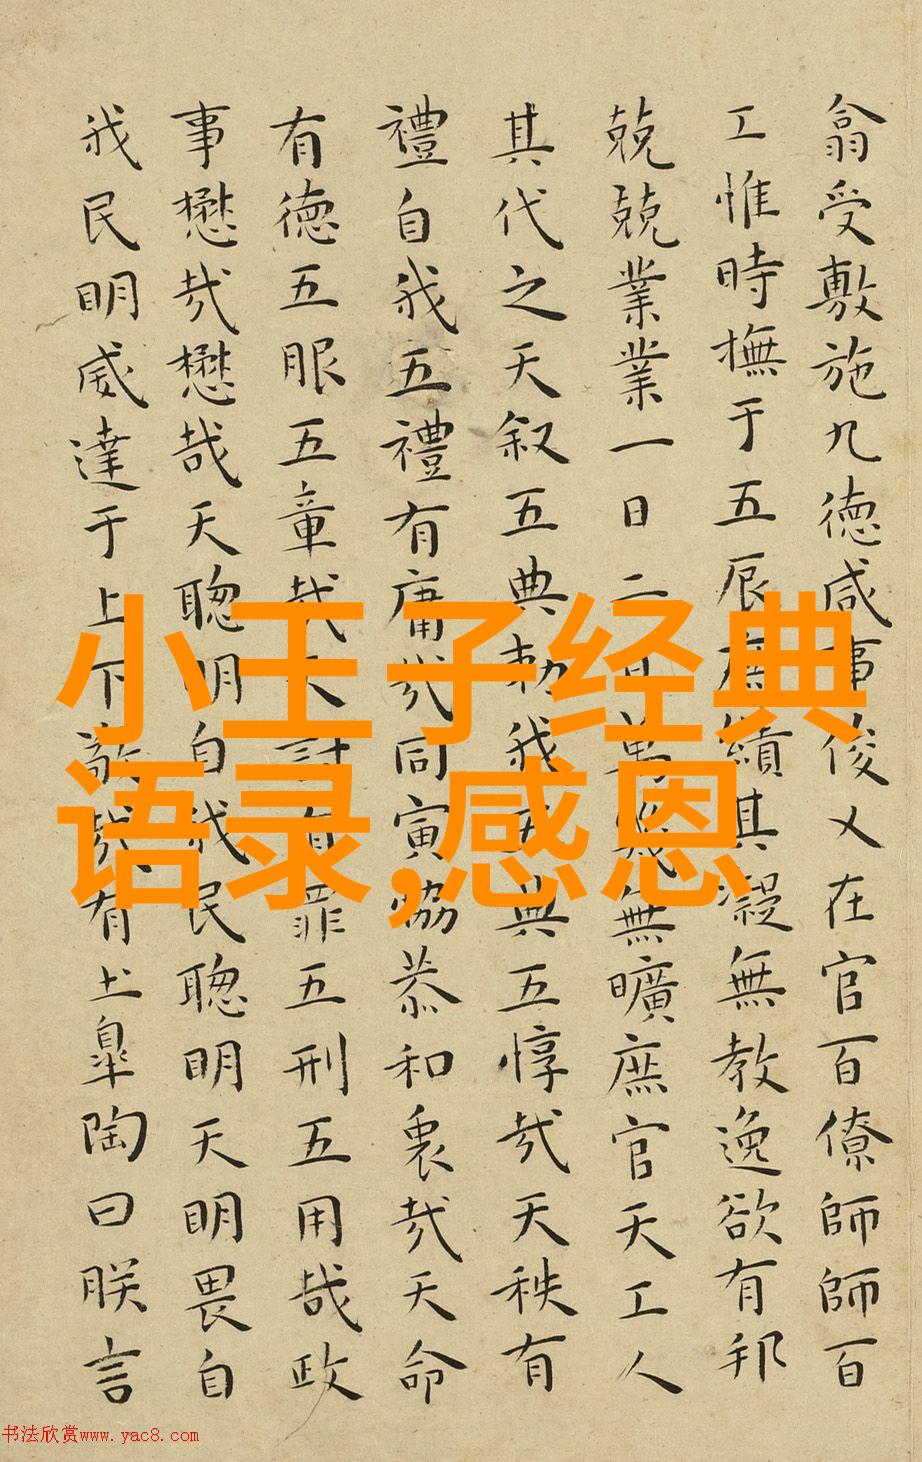 翕受敷施九德咸事俊乂在官百僚師師百
工惟時撫于五辰庶績其凝無教逸欲有邦
兢兢業業一日二日萬幾無曠庶官天工人
其代之天叙五典勑我五典五惇哉天秩有
禮自我五禮有庸哉同寅協恭和衷哉天命
有德五服五章哉天討有罪五刑五用哉政
事懋哉懋哉天聦明自我民聦明天明畏自
我民明威達于上下敬哉有土皐陶曰朕言
小王子经典
语录,感恩
书法欣赏www.yac8.com